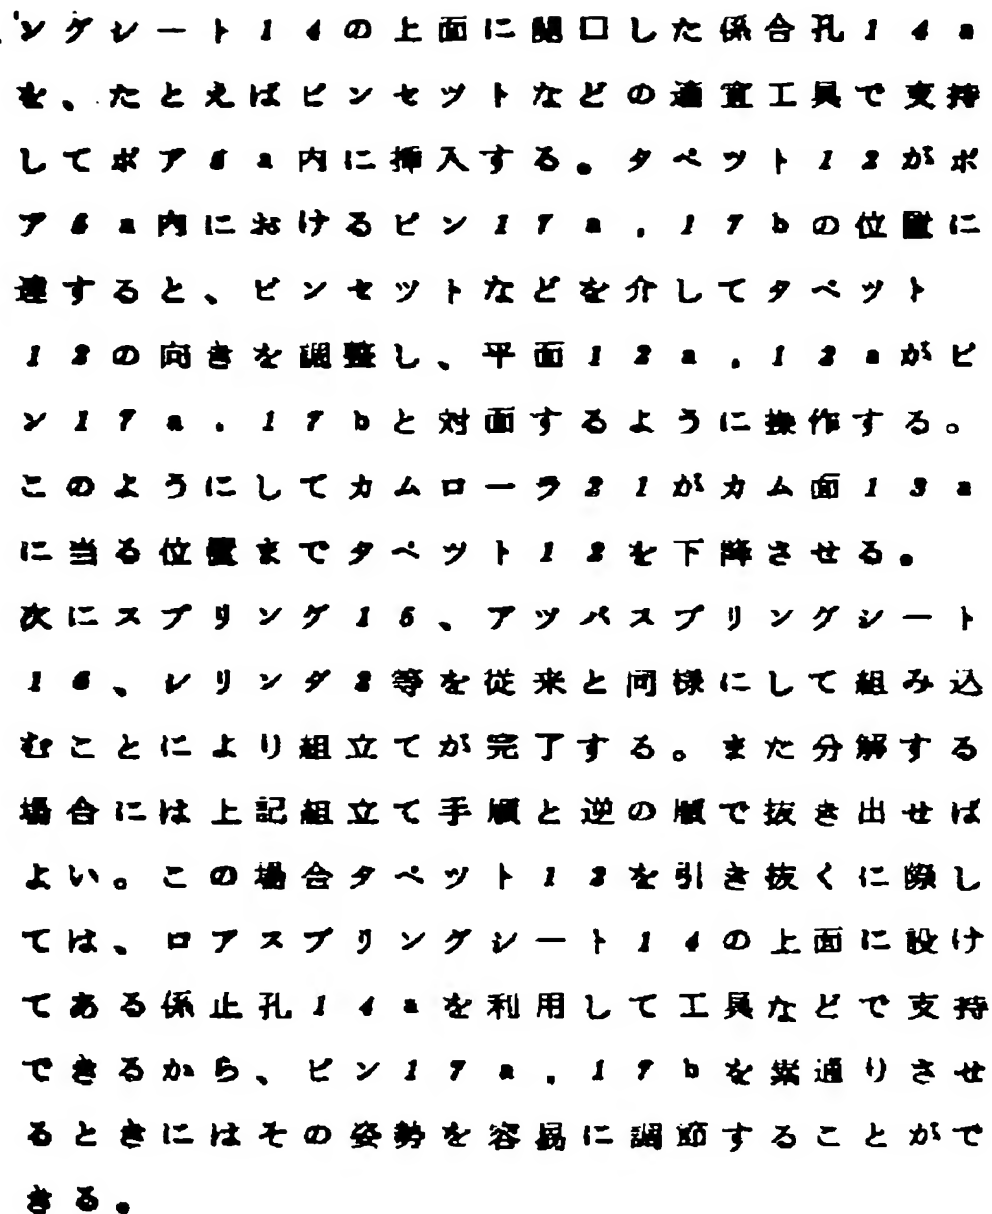 ングシート14の上面に開口した係合孔14a
を、たとえばピンセットなどの適宜工具で支持
してボア6a内に挿入する。タペット12がボ
ア6a内におけるピン17a,17bの位置に
達すると、ピンセットなどを介してタペット
12の向きを調整し、平面12a,12aがピ
ン17a,17bと対面するように操作する。
このようにしてカムローラ21がカム面13a
に当る位置までタペット12を下降させる。
次にスプリング15、アツパスプリングシート
16、レリング8等を従来と同様にして組み込
むことにより組立てが完了する。また分解する
場合には上記組立て手順と逆の順で抜き出せば
よい。この場合タペット12を引き抜くに際し
ては、ロアスプリングシート14の上面に設け
てある係止孔14aを利用して工具などで支持
できるから、ピン17a,17bを素通りさせ
るときにはその姿勢を容易に調節することがで
きる。